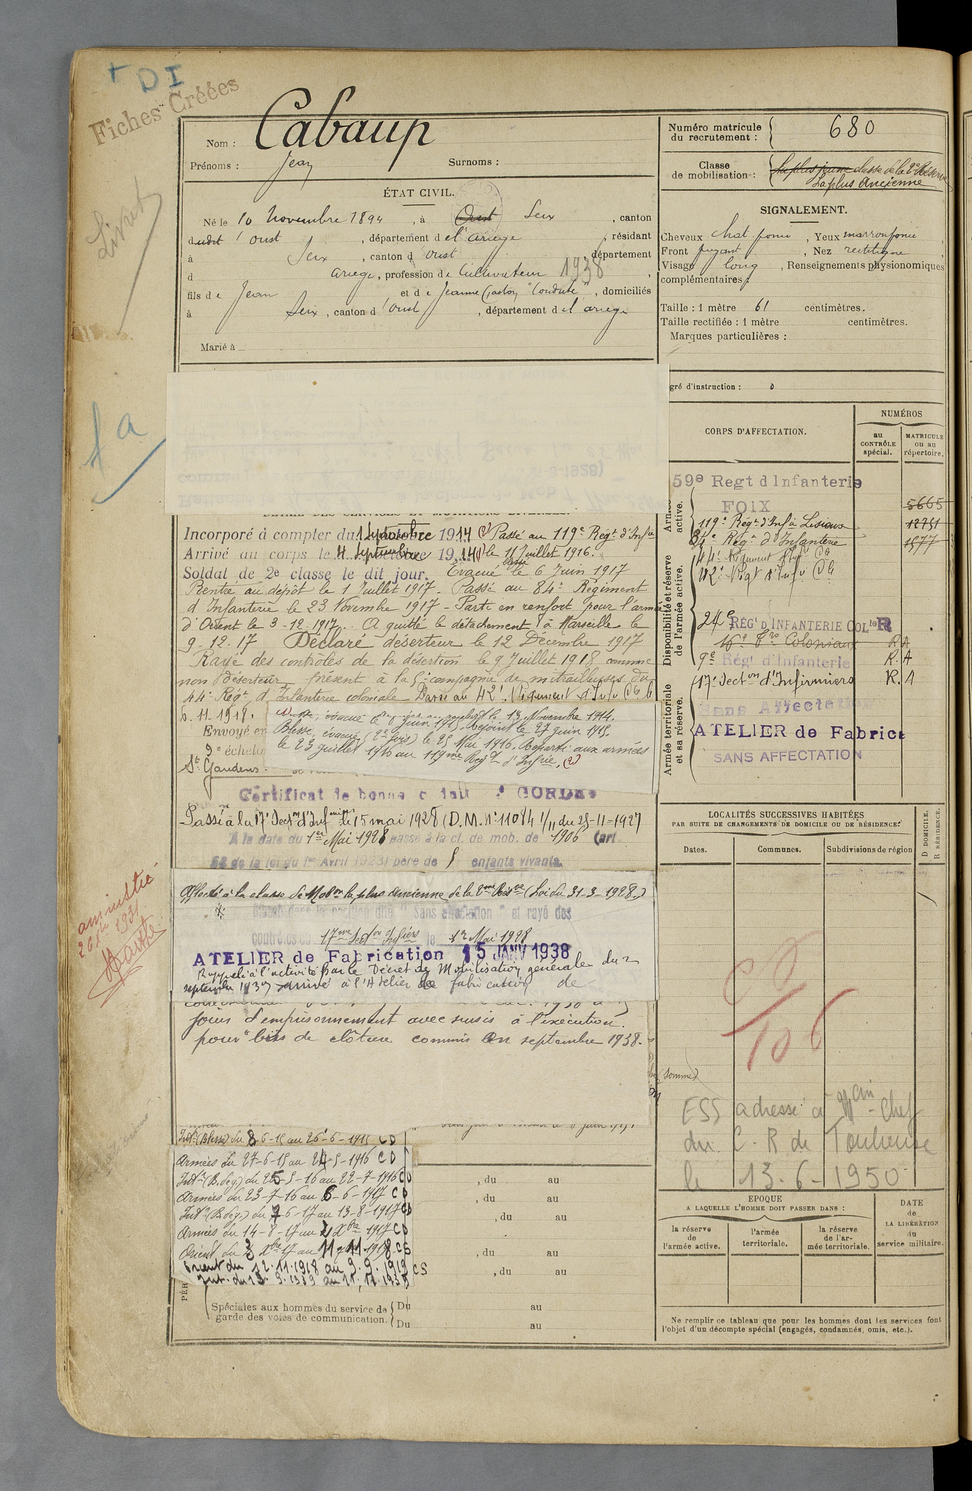 + DI
Fiches Créées
Livret
fa
Nom : Cabaup
Prénoms : Jean Surnoms :
ÉTAT CIVIL.
Né le 10 Novembre 1894, à Oust Seix, canton
dudit d'Oust, département de l'ariege, résidant
à Seix, canton d'oust département
d Ariege, profession de Cultivateur 1938
fils de Jean et de Jeanne, domiciliés
à Seix, canton d'oust, département de l'ariege
Marié à
Numéro matricule du recrutement : 680
Classe de mobilisation : La plus jeune classe de la 2e Réserve
La plus Ancienne
SIGNALEMENT.
Cheveux chat. foncé, Yeux marron foncé,
Front fuyant, Nez rectiligne,
Visage long, Renseignements physionomiques
complémentaires :
Taille : 1 mètre 61 centimètres.
Taille rectifiée : 1 mètre centimètres.
Marques particulières :
gré d'instruction : 0
CORPS D'AFFECTATION.
NUMÉROS
au CONTRÔLE spécial.
MATRICULE ou au répertoire.
Armée active.
59e Regt d'Infanterie
FOIX 5665
119e Régt d'Inf. à Lisieux 12751
84e Régt d'Infanterie 1577
Disponibilité et réserve de l'armée active.
44e Régiment Inf. Cle
42e Rgt d'Infie Cle
24e RÉGt D'INFANTERIE COLle R
16e Colonial R A
9e Régt d'Infanterie R. A
17e Section d'Infirmiers R. A
Armée territoriale et sa réserve.
Sans Affectation
ATELIER de Fabrica
SANS AFFECTATION
Incorporé à compter du 1 Septembre 1914 Passé au 119e Régt d'Infie
Arrivé au corps le 4 Septembre 1914 le 11 Juillet 1916.
Soldat de 2e classe le dit jour. Evacué le 6 Juin 1917
Rentré au dépôt le 1 Juillet 1917. Passé au 84e Régiment
d'Infanterie le 23 Novembre 1917 - Parti en renfort pour l'armée
d'Orient le 3-12-1917. A quitté le détachement à Marseille le
9.12.17 Déclaré déserteur le 12 Décembre 1917
Rayé des contrôles de la désertion le 9 Juillet 1918 comme
non déserteur, présent à la 5e compagnie de mitrailleuses du
44e Régt d'Infanterie coloniale. Passé au 42e Régiment d'Infie Cle le
6.11.1918.
Envoyé en
3e échelon
St Gaudens.
le 13 Novembre 1914.
Blessé, évacué (2e fois) le 25 Mai 1916. Reparti aux armées
le 23 juillet 1916 au 119me Régt d'Infrie.
Certificat de bonne conduite ACCORDÉ
Passé à la 17e Sectn d'Infirmiers le 15 mai 1928 (D.M. n° 11084 1/11 du 28-11-1927
A la date du 1er Mai 1928 passe à la cl. de mob. de 1906 (art.
58 de la loi du 1er Avril 1923) père de 5 enfants vivants.
Affecté à la classe de Mobon la plus ancienne de la 2me Résve (Loi du 31-3-1928.)
Classé dans la position dite "Sans affectation" et rayé des
contrôles de 17me Son Infiers le 1er Mai 1928
ATELIER de Fabrication 15 JANV 1938
Rappelé à l'activité par le Décret de Mobilisation générale du 2
septembre 1939 arrivé à l'Atelier de fabrication de
jours d'emprisonnement avec sursis à l'exécution.
pour bris de clôture commis en septembre 1938.
amnistie
LOCALITÉS SUCCESSIVES HABITÉES
PAR SUITE DE CHANGEMENTS DE DOMICILE OU DE RÉSIDENCE.
Dates. Communes. Subdivisions de région
D DOMICILE.
R RÉSIDENCE.
(somme)
ESS adressé à Mcin-Chef
du C.R de Toulouse
le 13-6-1950
Intr (Blessé) du 8-6-15 au 26-6-1915 CD
Armées du 27-6-15 au 24-5-1916 CD
Intr (B. Gez.) du 25-5-16 au 22-7-1916 CD
Armées du 23-7-16 au 6-6-1917 CD
Intr (B. Gez.) du 7-6-17 au 13-8-1917 CD
Armées du 14-8-17 au 2 Xbre 1917 CD
Orient du 3 Xbre 17 au 11-11-1918 CS
Orient du 12.11.1918 au 9.9.1919 CS
, du au
, du au
, du au
, du au
, du au
Spéciales aux hommes du service de garde des voies de communication. Du au
Du au
EPOQUE
A LAQUELLE L'HOMME DOIT PASSER DANS :
la réserve de l'armée active.
l'armée territoriale.
la réserve de l'armée territoriale.
DATE de LA LIBÉRATION du service militaire.
Ne remplir ce tableau que pour les hommes dont les services font
l'objet d'un décompte spécial (engagés, condamnés, omis, etc.).